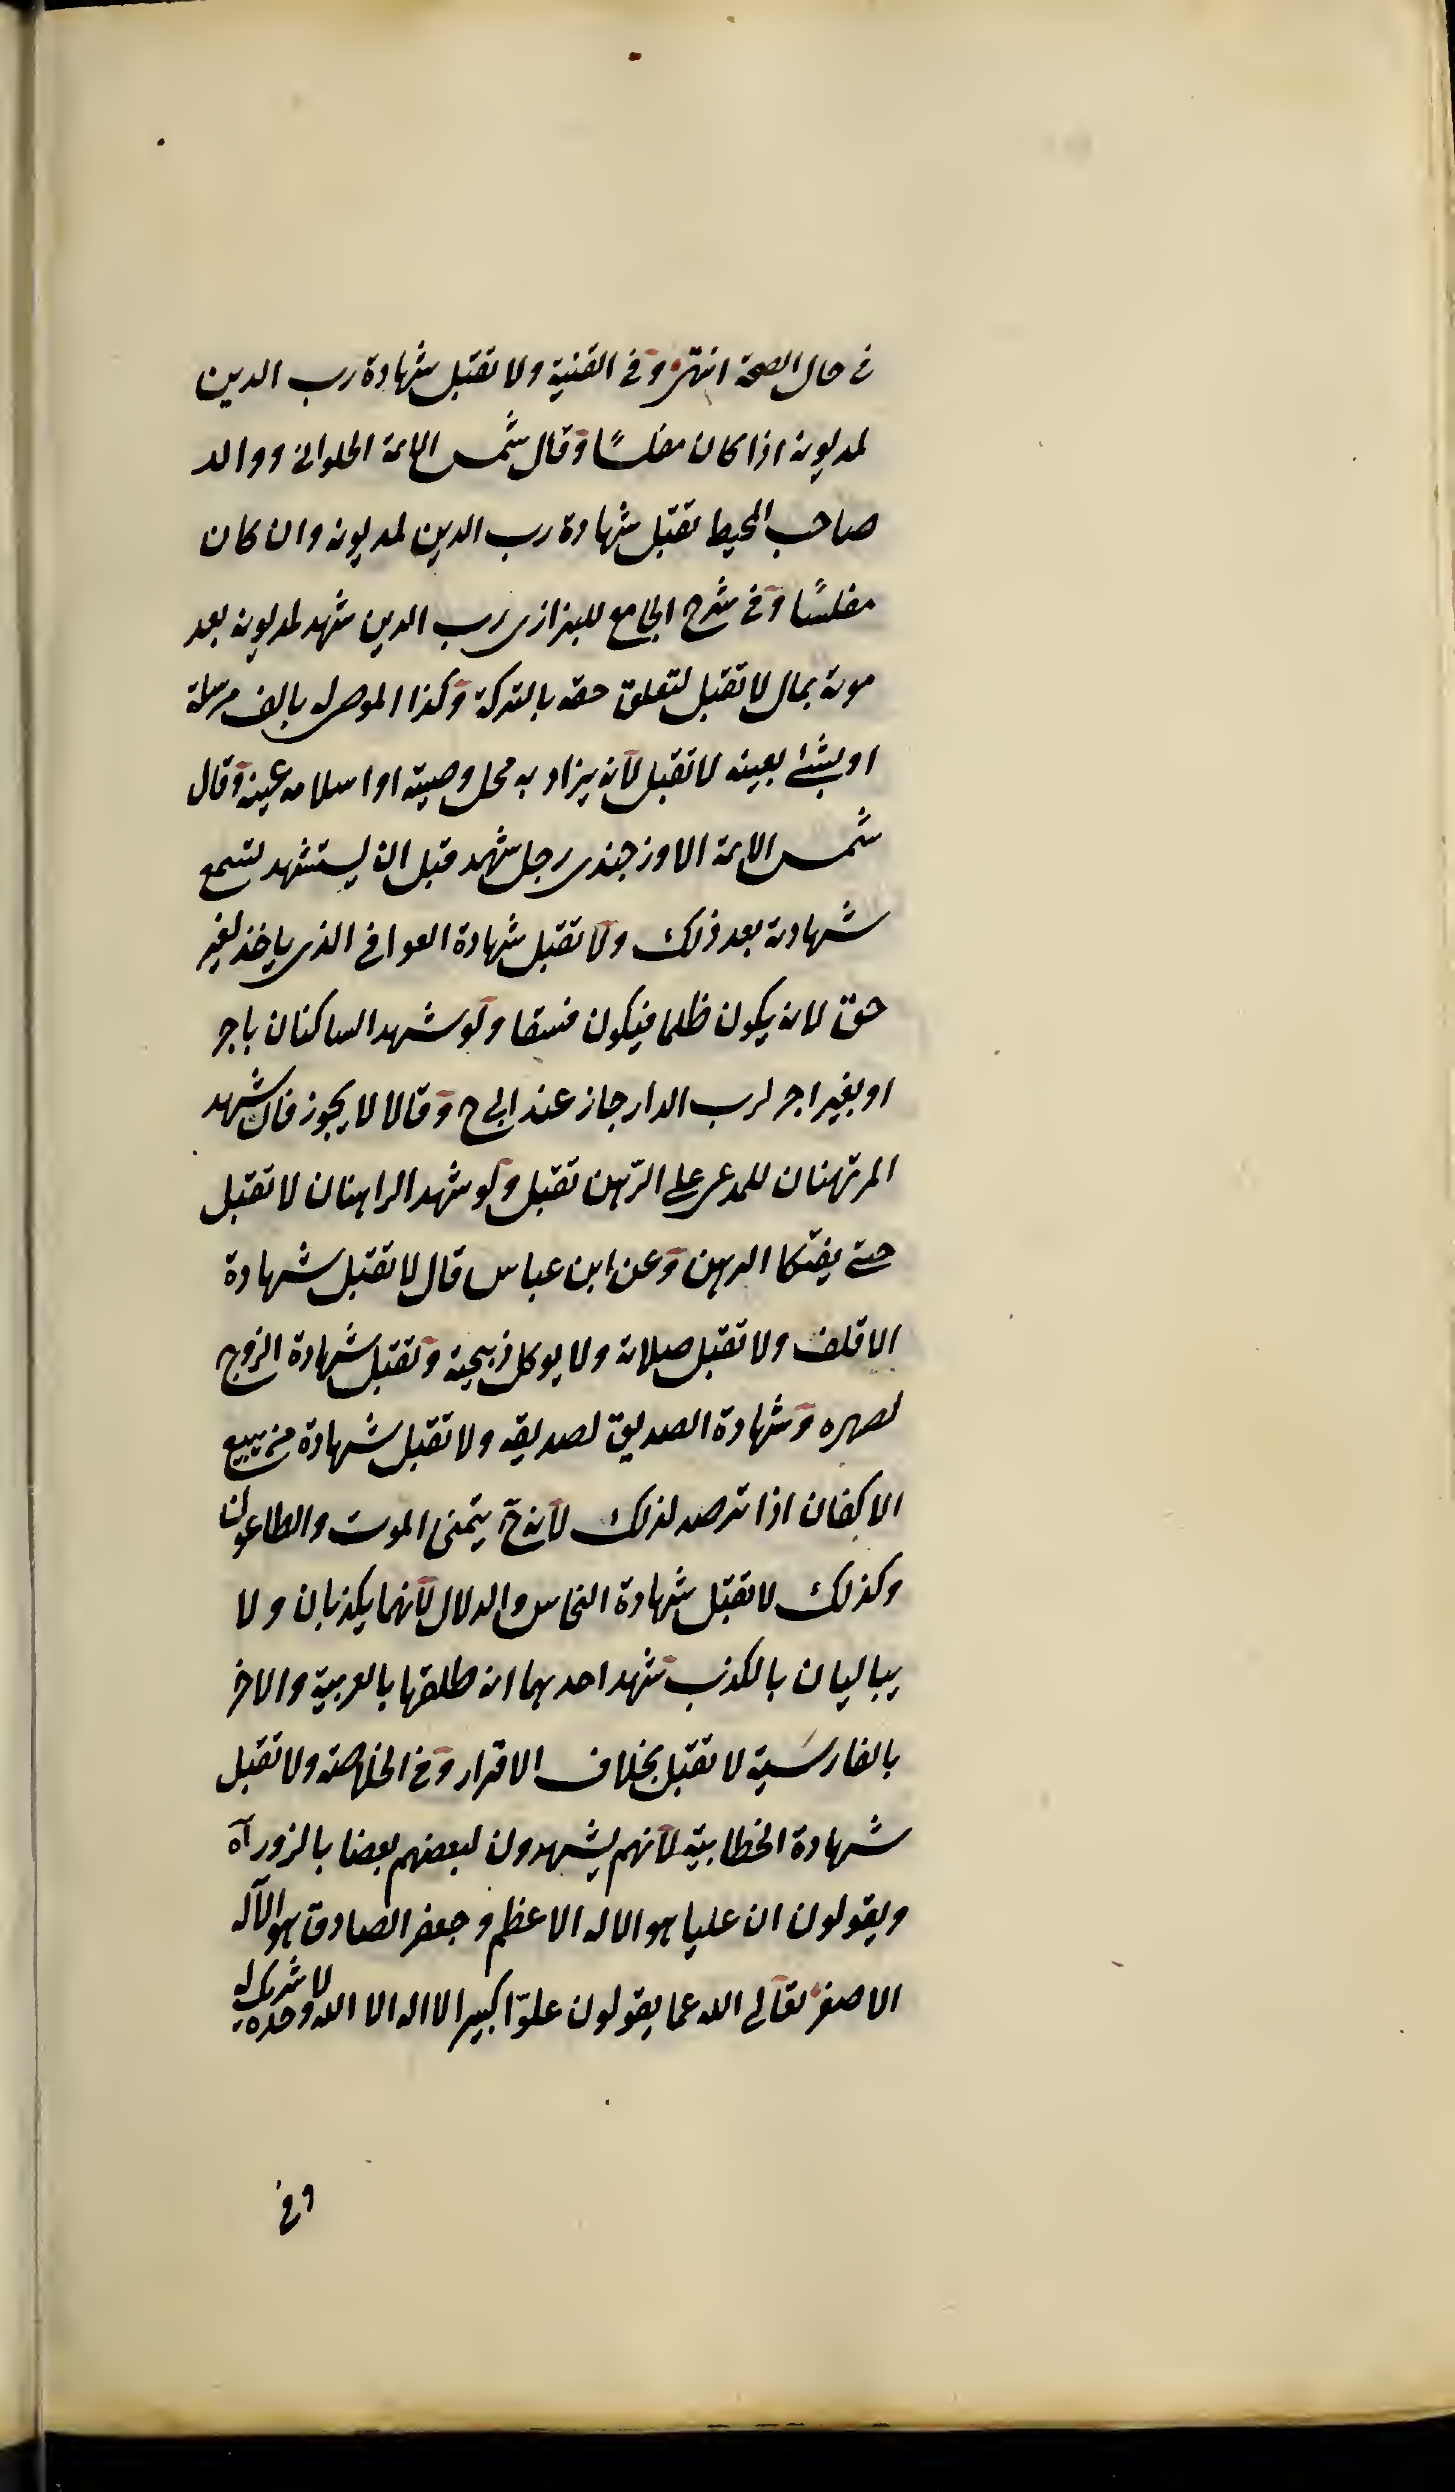 في حال الصحة انتهى وفي القنية ولا تقبل شهادة رب الدين
لمديونه اذا كان مفلسًا وقال شمس الائمة الحلواني ووالد
صاحب المحيط تقبل شهادة رب الدين لمديونه وان كان
مفلسًا وفي شرح الجامع للبزازى رب الدين شهد لمديونه بعد
موته بمال لا تقبل لتعلق حقه بالتركة وكذا الموصى له بالف مرسلة
او بشئ بعينه لا تقبل لانه يزاد به محل وصيته او اسلامه عينه وقال
شمس الائمة الاوزجندى رجل شهد قبل ان يستشهد تسمع
شهادته بعد ذلك ولا تقبل شهادة العوافي الذى ياخذ لغير
حق لانه يكون ظلما فيكون فسقا ولو شهد الساكنان باجر
او بغير اجر لرب الدار جاز عند ابي ح وقالا لا يجوز فان شهد
المرتهنان للمدعى على الرّهن تقبل ولو شهد الراهنان لا تقبل
حتى يفتكا الرهن وعن ابن عباس قال لا تقبل شهادة
الاقلف ولا تقبل صلاته ولا يوكل ذبيحته وتقبل شهادة الزوج
لصهره وشهادة الصديق لصديقه ولا تقبل شهادة من يبيع
الاكفان اذا ترصد لذلك لانه ح يتمنى الموت والطاعون
وكذلك لا تقبل شهادة النخاس والدلال لانهما يكذبان ولا
يباليان بالكذب شهد احدهما انه طلقها بالعربية والاخر
بالفارسية لا تقبل بخلاف الاقرار وفي الخلاصة ولا تقبل
شهادة الخطابية لانهم يشهدون لبعضهم بعضا بالزور آه
ويقولون ان عليا هو الاله الاعظم وجعفر الصادق هو الآله
الاصغر تعالى الله عما يقولون علوّا كبيرا لا اله الا الله وحده لا شريك له
وفي